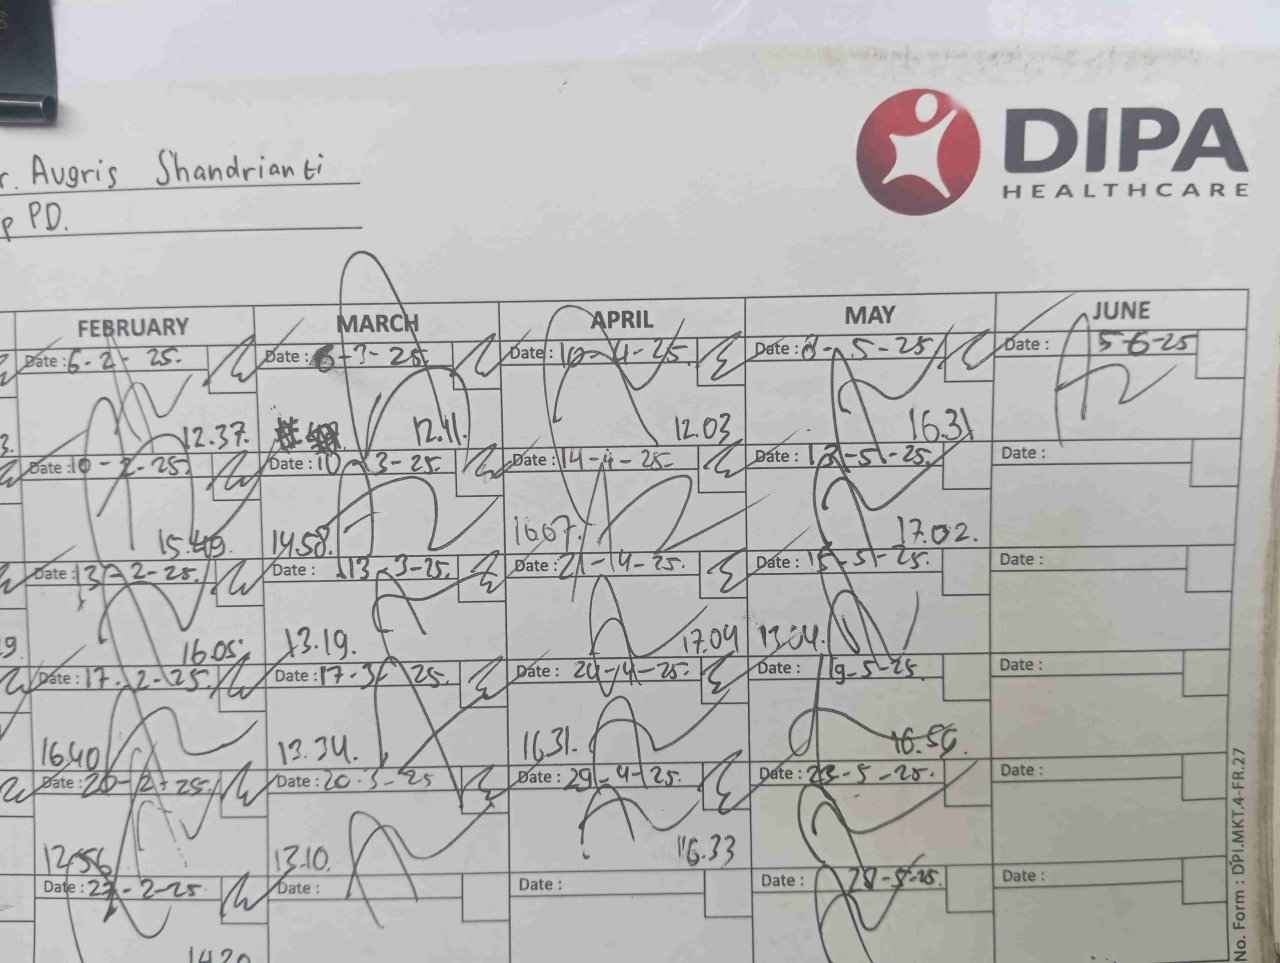 DIPA
HEALTHCARE
r. Augris Shandrianti
p PD.
FEBRUARY MARCH APRIL MAY JUNE
Date : 6-2-25. Date : 6-3-25. Date : 10-4-25. Date : 8-5-25 Date : 5-6-25
3. 12.37. 12.41. 12.03 16.31
Date : 10-2-25. Date : 10-3-25. Date : 14-4-25. Date : 13-5-25. Date :
15.49. 14.58. 16.07. 17.02.
Date : 13-2-25. Date : 13-3-25. Date : 21-4-25. Date : 15-5-25. Date :
19. 16.05. 13.19. 17.04 13.04.
Date : 17-2-25. Date : 17-3-25. Date : 24-4-25. Date : 19-5-25. Date :
16.40 13.34. 16.31. 16.56.
Date : 20-2-25. Date : 20-3-25 Date : 29-4-25. Date : 23-5-25. Date :
12.56 13.10. 16.33
Date : 27-2-25 Date : Date : Date : 28-5-25. Date :
14.20
No. Form : DPI.MKT.4-FR.27